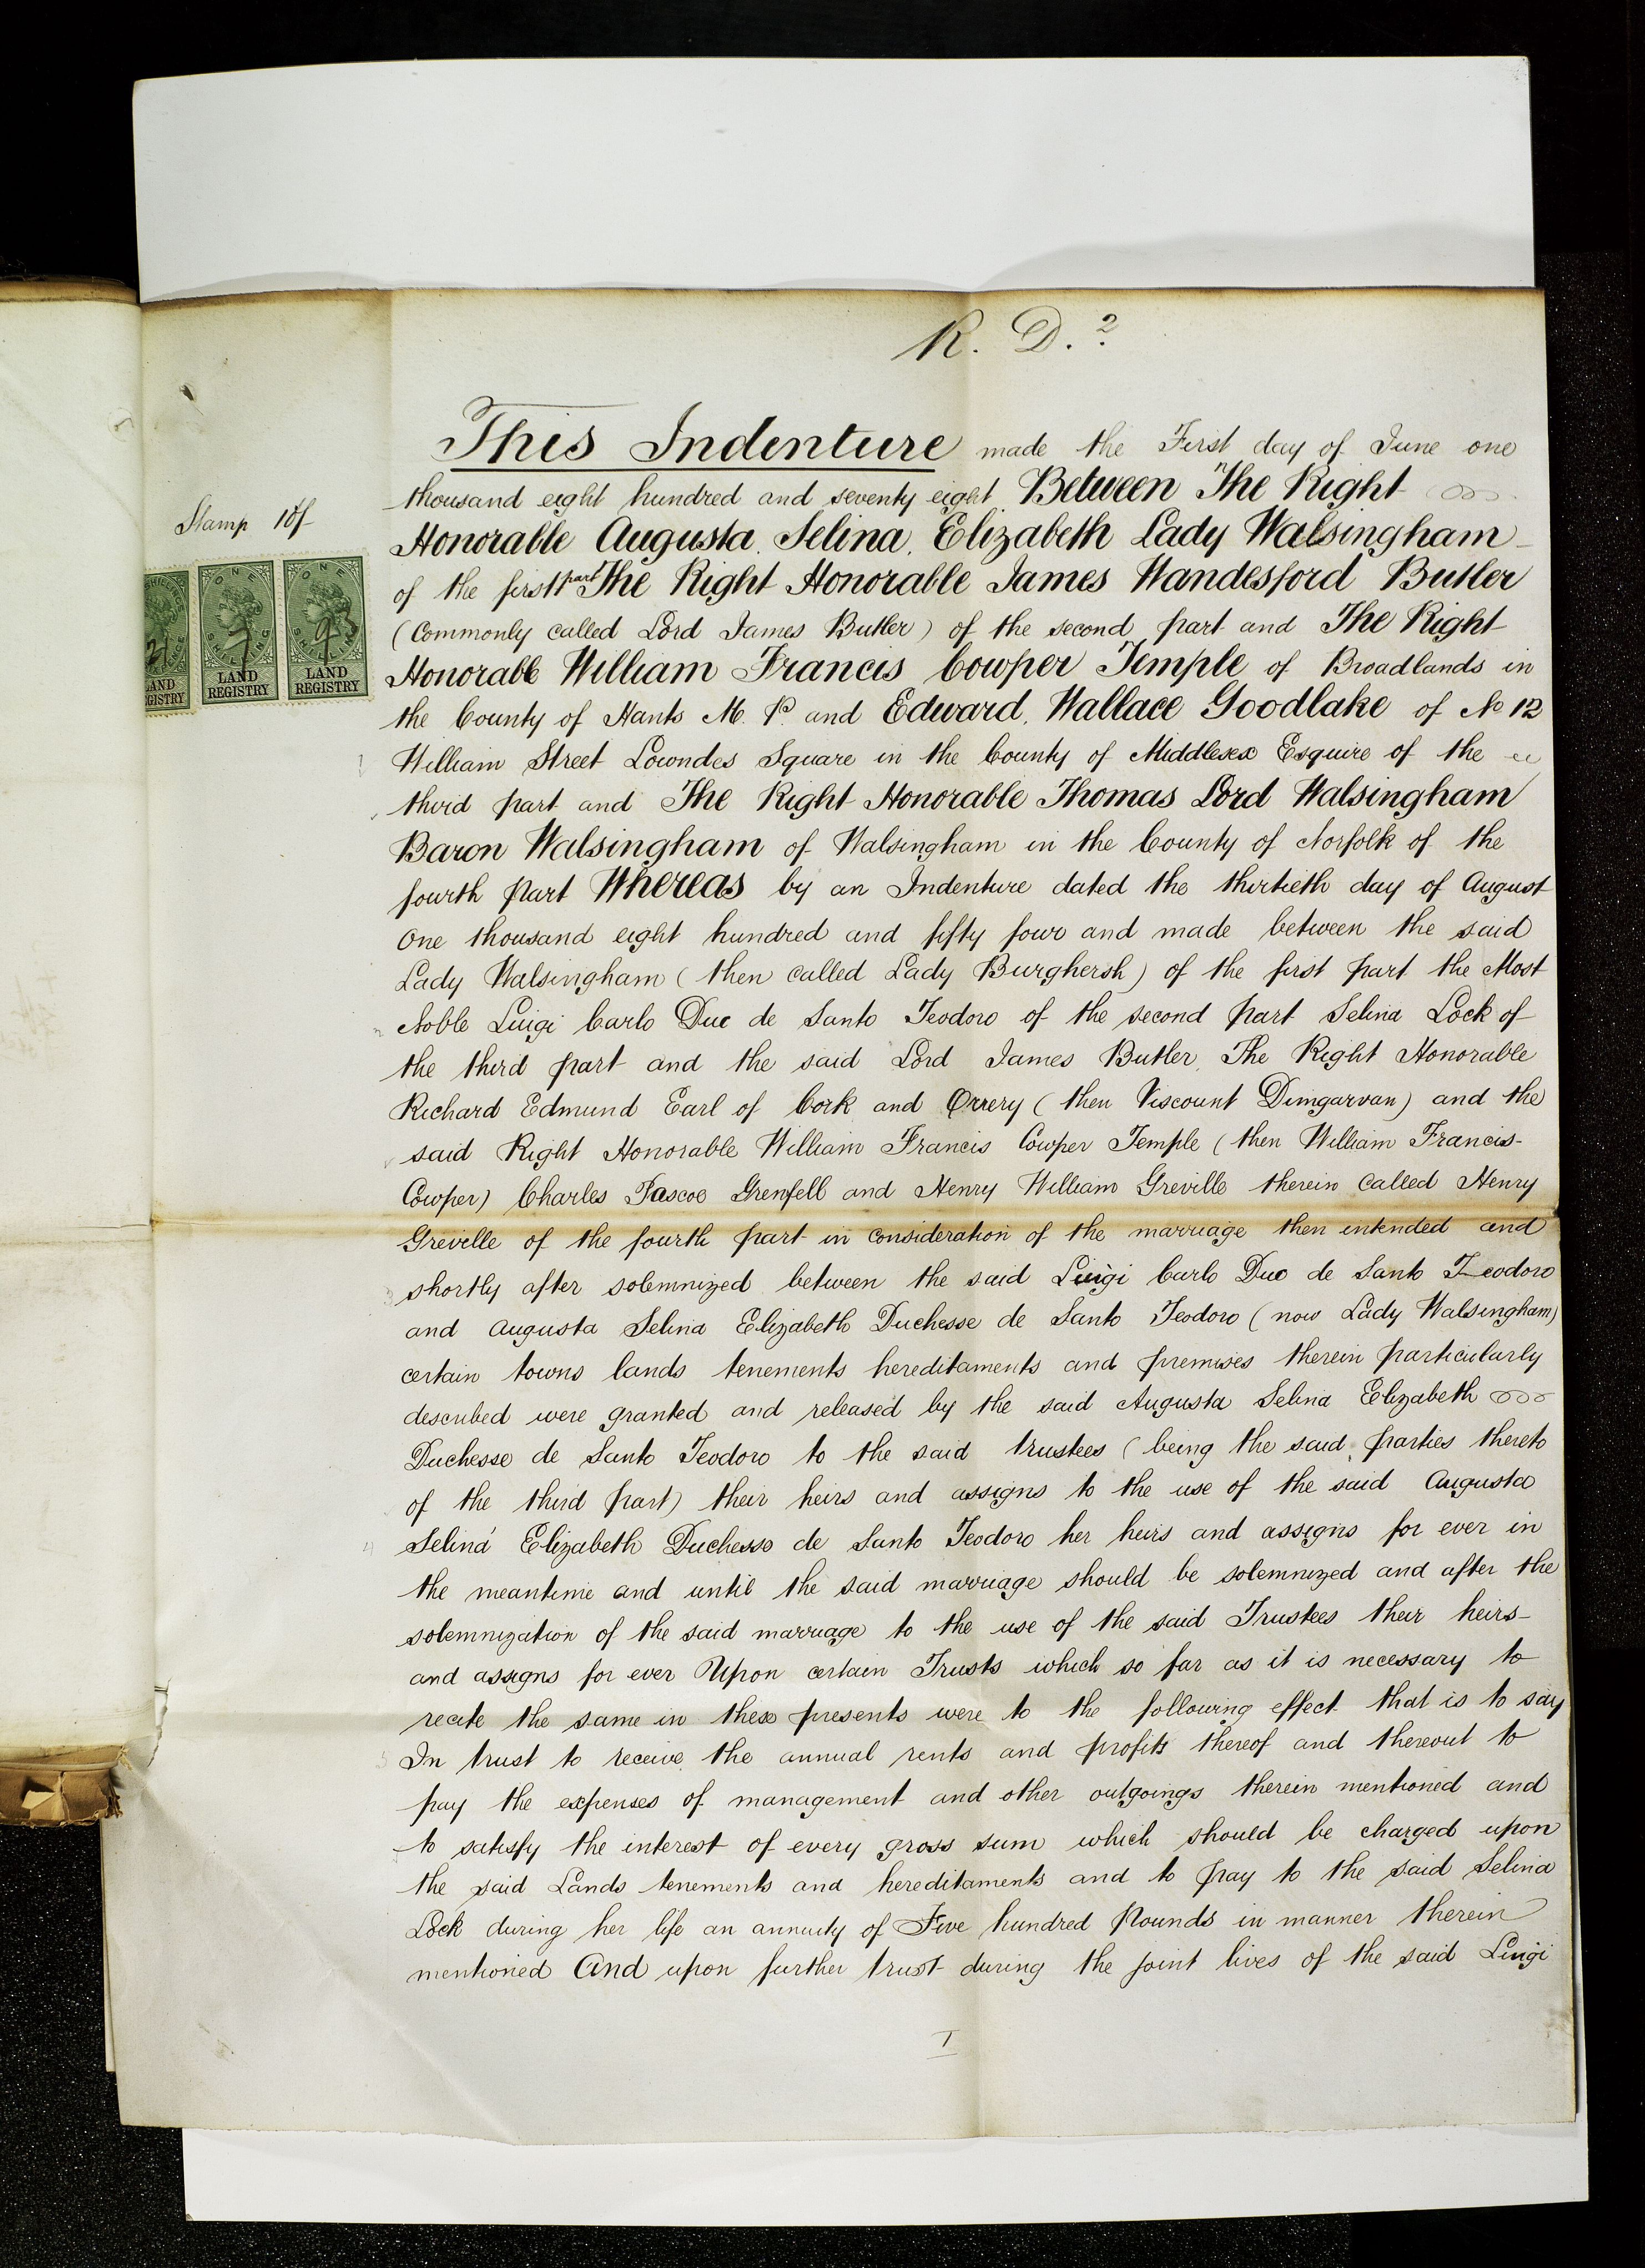 R. D.?
This Indenture made the First day of June one
thousand eight hundred and seventy eight Between The Right
Stamp 10/-
Honorable Augusta Selina Elizabeth Lady Walsingham
of the first part The Right Honorable James Wandesford Butler
(Commonly called Lord James Butler) of the second part and The Right
Honorable William Francis Cowper Temple of Broadlands in
the County of Hants M. P. and Edward Wallace Goodlake of No 12
ONE SHILLING LAND REGISTRY
ONE SHILLING LAND REGISTRY
William Street Lowndes Square in the County of Middlesex Esquire of the
third part and The Right Honorable Thomas Lord Walsingham
Baron Walsingham of Walsingham in the County of Norfolk of the
fourth part Whereas by an Indenture dated the thirtieth day of August
One thousand eight hundred and fifty four and made between the said
Lady Walsingham (then called Lady Burghersh) of the first part the Most
Noble Luigi Carlo Duc de Santo Teodoro of the second part Selina Lock of
the third part and the said Lord James Butler The Right Honorable
Richard Edmund Earl of Cork and Orrery (then Viscount Dungarvan) and the
said Right Honorable William Francis Cowper Temple (then William Francis
Cowper) Charles Pascoe Grenfell and Henry William Greville therein called Henry
Greville of the fourth part in consideration of the marriage then intended and
shortly after solemnized between the said Luigi Carlo Duc de Santo Teodoro
and Augusta Selina Elizabeth Duchesse de Santo Teodoro (now Lady Walsingham)
certain towns lands tenements hereditaments and premises therein particularly
described were granted and released by the said Augusta Selina Elizabeth
Duchesse de Santo Teodoro to the said trustees (being the said parties thereto
of the third part) their heirs and assigns to the use of the said Augusta
Selina Elizabeth Duchesse de Santo Teodoro her heirs and assigns for ever in
the meantime and until the said marriage should be solemnized and after the
solemnization of the said marriage to the use of the said Trustees their heirs
and assigns for ever Upon certain Trusts which so far as it is necessary to
recite the same in these presents were to the following effect that is to say
In trust to receive the annual rents and profits thereof and thereout to
pay the expenses of management and other outgoings therein mentioned and
to satisfy the interest of every gross sum which should be charged upon
the said Lands tenements and hereditaments and to pay to the said Selina
Lock during her life an annuity of Five hundred Pounds in manner therein
mentioned And upon further trust during the joint lives of the said Luigi
1